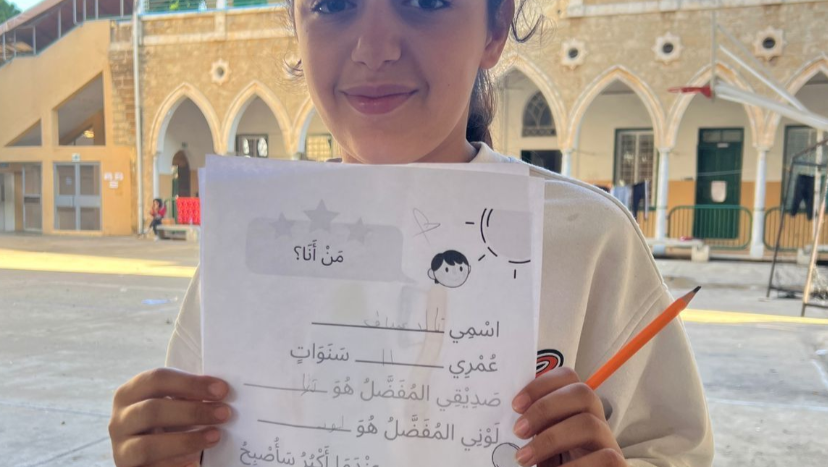 مَنْ أَنَا؟
اسْمِي
عُمْرِي 11 سَنَوَاتٍ
صَدِيْقِي المُفَضَّلُ هُوَ
لَوْنِي المُفَضَّلُ هُوَ
عِنْدَمَا أَكْبُرُ سَأُصْبِحُ